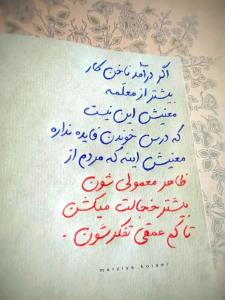 اگر درآمد ناخن کار
بیشتر از معلمه
معنیش این نیست
که درس خوندن فایده نداره
معنیش اینه که مردم از
ظاهر معمولی شون
بیشتر خجالت میکشن
تا کم عمقی تفکرشون .
marziye.kolaei